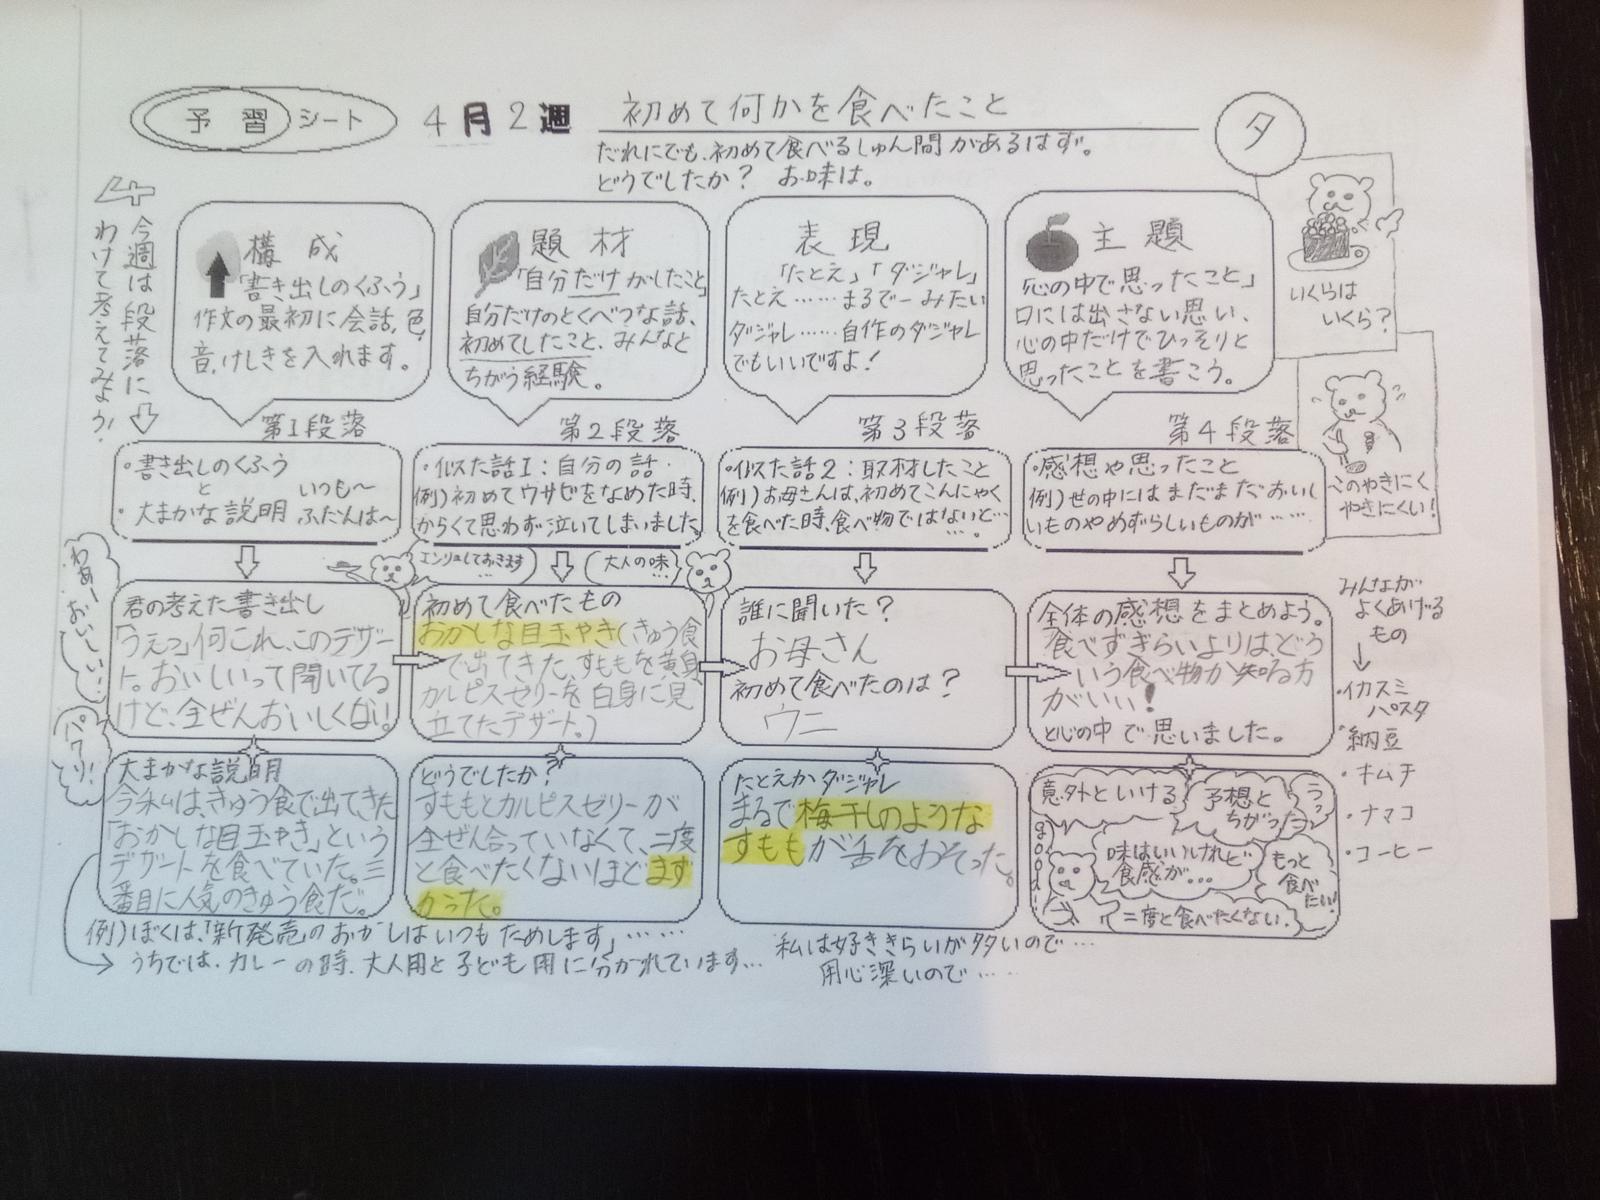 予習シート
4月2週
初めて何かを食べたこと
夕
だれにでも、初めて食べるしゅん間があるはず。
どうでしたか? お味は。
今週は段落に
わけて考えてみよう!
構成
「書き出しのくふう」
作文の最初に会話、色、
音、けしきを入れます。
題材
「自分だけがしたこと」
自分だけのとくべつな話、
初めてしたこと、みんなと
ちがう経験。
表現
「たとえ」「ダジャレ」
たとえ……まるで―みたい
ダジャレ……自作のダジャレ
でもいいですよ!
主題
「心の中で思ったこと」
口には出さない思い、
心の中だけでひっそりと
思ったことを書こう。
いくらは
いくら?
このやきにく
やきにくい!
第1段落
・書き出しのくふう
と
・大まかな説明
いつも~
ふだんは~
第2段落
・似た話1:自分の話・
例)初めてワサビをなめた時、
からくて思わず泣いてしまいました。
第3段落
・似た話2:取材したこと
例)お母さんは、初めてこんにゃく
を食べた時、食べ物ではないと…
…。
第4段落
・感想や思ったこと
例)世の中にはまだまだおいし
いものやめずらしいものが……
わぁーおいしい…!
パクリ!
エンリョしておきます
…
大人の味…
君の考えた書き出し
「うえっ」何これ、このデザー
ト。おいしいって聞いてる
けど、全ぜんおいしくない!
初めて食べたもの
おかしな目玉やき(きゅう食
で出てきた、すももを黄身
カルピスゼリーを白身に見
立てたデザート。)
誰に聞いた?
お母さん
初めて食べたのは?
ウニ
全体の感想をまとめよう。
食べずぎらいよりは、どう
いう食べ物か知る方
がいい!
と心の中で思いました。
みんなが
よくあげる
もの
・イカスミ
パスタ
・納豆
・キムチ
・ナマコ
・コーヒー
大まかな説明
今私は、きゅう食で出てきた
「おかしな目玉やき」という
デザートを食べていた。三
番目に人気のきゅう食だ。
どうでしたか?
すももとカルピスゼリーが
全ぜん合っていなくて、二度
と食べたくないほどまず
かった。
たとえかダジャレ
まるで梅干しのような
すももが舌をおそった。
意外といける
予想と
ちがった
うっ
味はいいけれど
食感が…
もっと
食べ
たい!
二度と食べたくない。
例)ぼくは、「新発売」のおかしはいつもためします」……
うちでは、カレーの時、大人用と子ども用に分かれています…
私は好ききらいが多いので…
用心深いので……